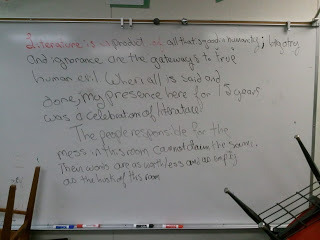 Literature is a product of all that is good in humanity; bigotry
and ignorance are the gateways to true
human evil. When all is said and
done, my presence here for 15 years
was a celebration of literature!
The people responsible for the
mess in this room cannot claim the same.
Their words are as worthless and as empty
as the husk of this room